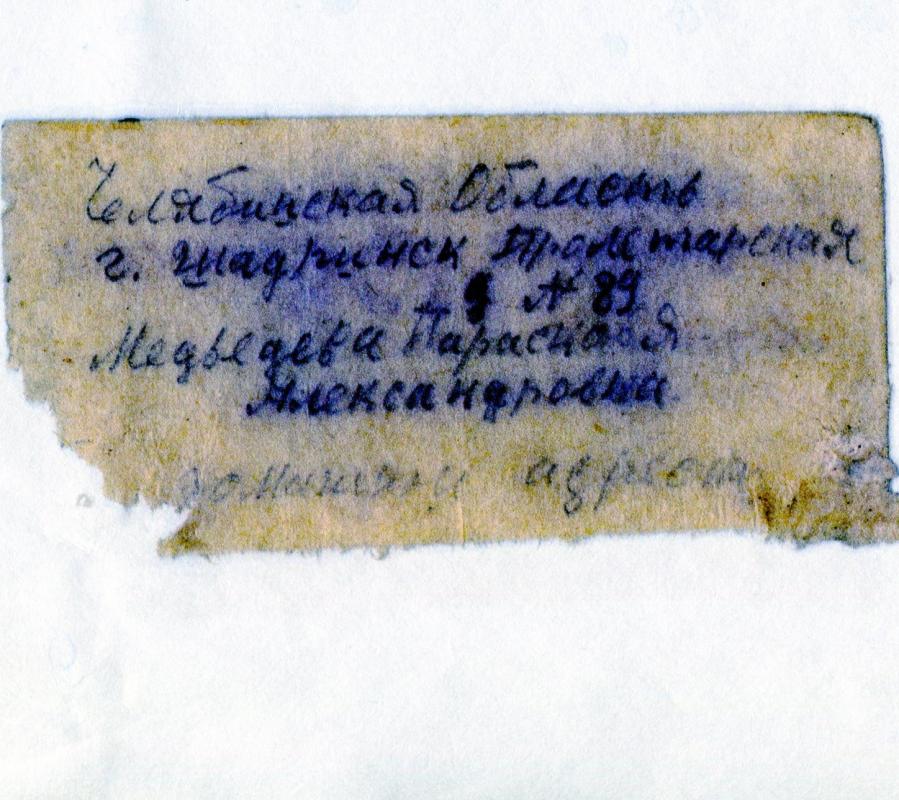 Челябинская Область
г. Шадринск Пролетарская
№ 89
Медведева Парасковья
Александровна
адресу